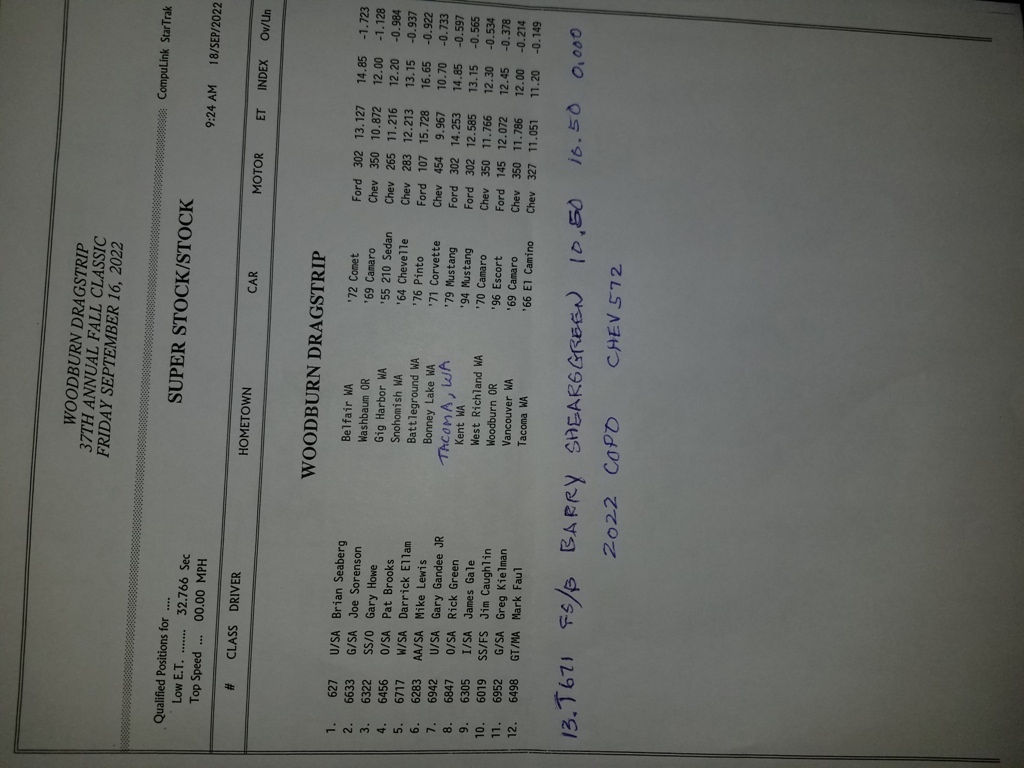 WOODBURN DRAGSTRIP
37TH ANNUAL FALL CLASSIC
FRIDAY SEPTEMBER 16, 2022
CompuLink StarTrak
Qualified Positions for ....
Low E.T. ....... 32.766 Sec
SUPER STOCK/STOCK
Top Speed ... 00.00 MPH 9:24 AM 18/SEP/2022
# CLASS DRIVER HOMETOWN CAR MOTOR ET INDEX Ov/Un
WOODBURN DRAGSTRIP
1. 627 U/SA Brian Seaberg Belfair WA '72 Comet Ford 302 13.127 14.85 -1.723
2. 6633 G/SA Joe Sorenson Washbaum OR '69 Camaro Chev 350 10.872 12.00 -1.128
3. 6322 SS/O Gary Howe Gig Harbor WA '55 210 Sedan Chev 265 11.216 12.20 -0.984
4. 6456 O/SA Pat Brooks Snohomish WA '64 Chevelle Chev 283 12.213 13.15 -0.937
5. 6717 W/SA Darrick Ellam Battleground WA '76 Pinto Ford 107 15.728 16.65 -0.922
6. 6283 AA/SA Mike Lewis Bonney Lake WA '71 Corvette Chev 454 9.967 10.70 -0.733
7. 6942 U/SA Gary Gandee JR TACOMA, WA '79 Mustang Ford 302 14.253 14.85 -0.597
8. 6847 O/SA Rick Green Kent WA '94 Mustang Ford 302 12.585 13.15 -0.565
9. 6305 I/SA James Gale West Richland WA '70 Camaro Chev 350 11.766 12.30 -0.534
10. 6019 SS/FS Jim Caughlin Woodburn OR '96 Escort Ford 145 12.072 12.45 -0.378
11. 6952 G/SA Greg Kielman Vancouver WA '69 Camaro Chev 350 11.786 12.00 -0.214
12. 6498 GT/MA Mark Faul Tacoma WA '66 El Camino Chev 327 11.051 11.20 -0.149
13. T671 FS/B BARRY SHEARSGREEN 10.50 10.50 0.000
2022 COPO CHEV 572